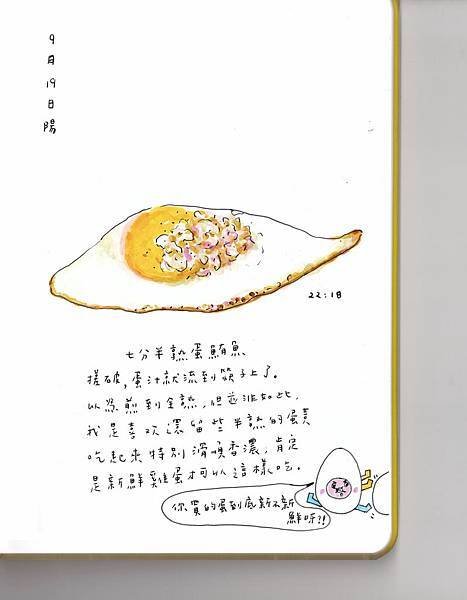 9月19日陽
22:18
七分半熟蛋鮪魚
搓破,蛋汁就流到筷子上了。
以為煎到全熟,但並非如此,
我是喜欢還留些半熟的蛋黃
吃起來特別滑順香濃,肯定
是新鮮雞蛋才可以這樣吃。
你買的蛋到底新不新
鮮呀?!